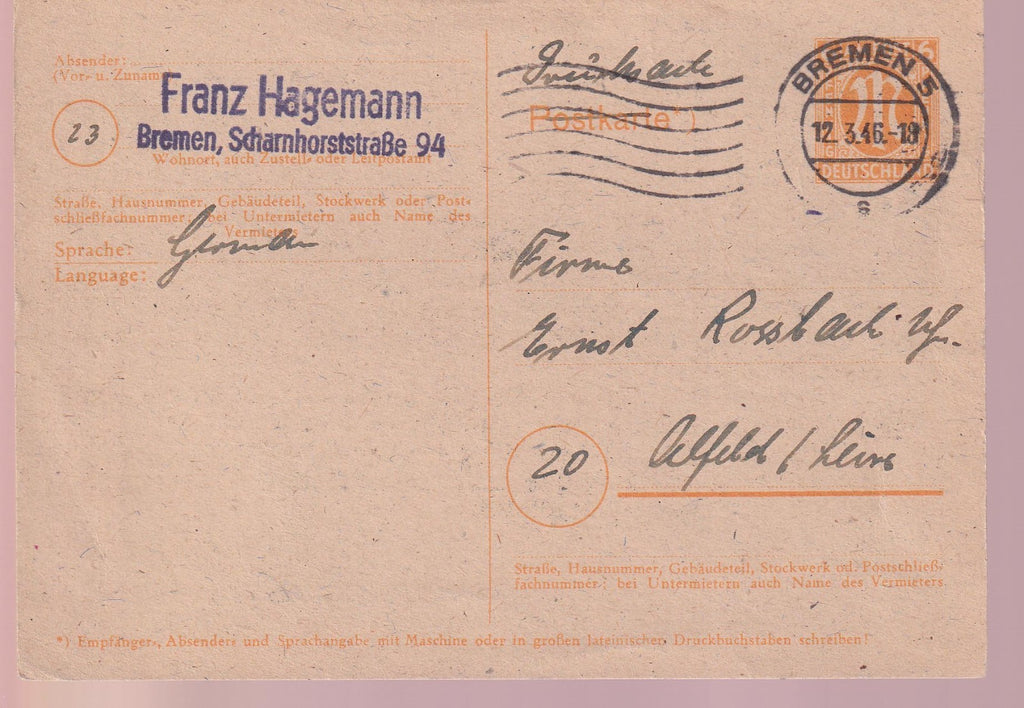 Absender:
(Vor- u. Zunam
Franz Hagemann
23
Bremen, Scharnhorststraße 94
Wohnort, auch Zustell- oder Leitpostamt
Straße, Hausnummer, Gebäudeteil, Stockwerk oder Post-
schließfachnummer; bei Untermietern auch Name des
Vermieters
Sprache:
Language:
German
Drucksache
Postkarte*)
6
BREMEN 5
12.3.46.-18
s
DEUTSCHLAND
Firma
Ernst Rossbach
20
Alfeld / Leine
Straße, Hausnummer, Gebäudeteil, Stockwerk od. Postschließ-
fachnummer; bei Untermietern auch Name des Vermieters.
*) Empfänger-, Absender- und Sprachangabe mit Maschine oder in großen lateinischen Druckbuchstaben schreiben!